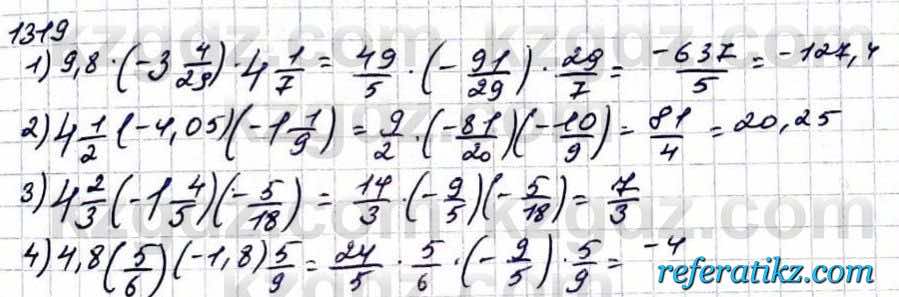 1319
1) 9,8 · (-3 4/29) · 4 1/7 = 49/5 · (- 91/29) · 29/7 = -637/5 = -127,4
2) 4 1/2 (-4,05)(-1 1/9) = 9/2 · (- 81/20)(- 10/9) = 81/4 = 20,25
3) 4 2/3 (-1 4/5)(- 5/18) = 14/3 · (- 9/5)(- 5/18) = 7/3
4) 4,8 (5/6) (-1,8) 5/9 = 24/5 · 5/6 · (- 9/5) · 5/9 = -4
referatikz.com